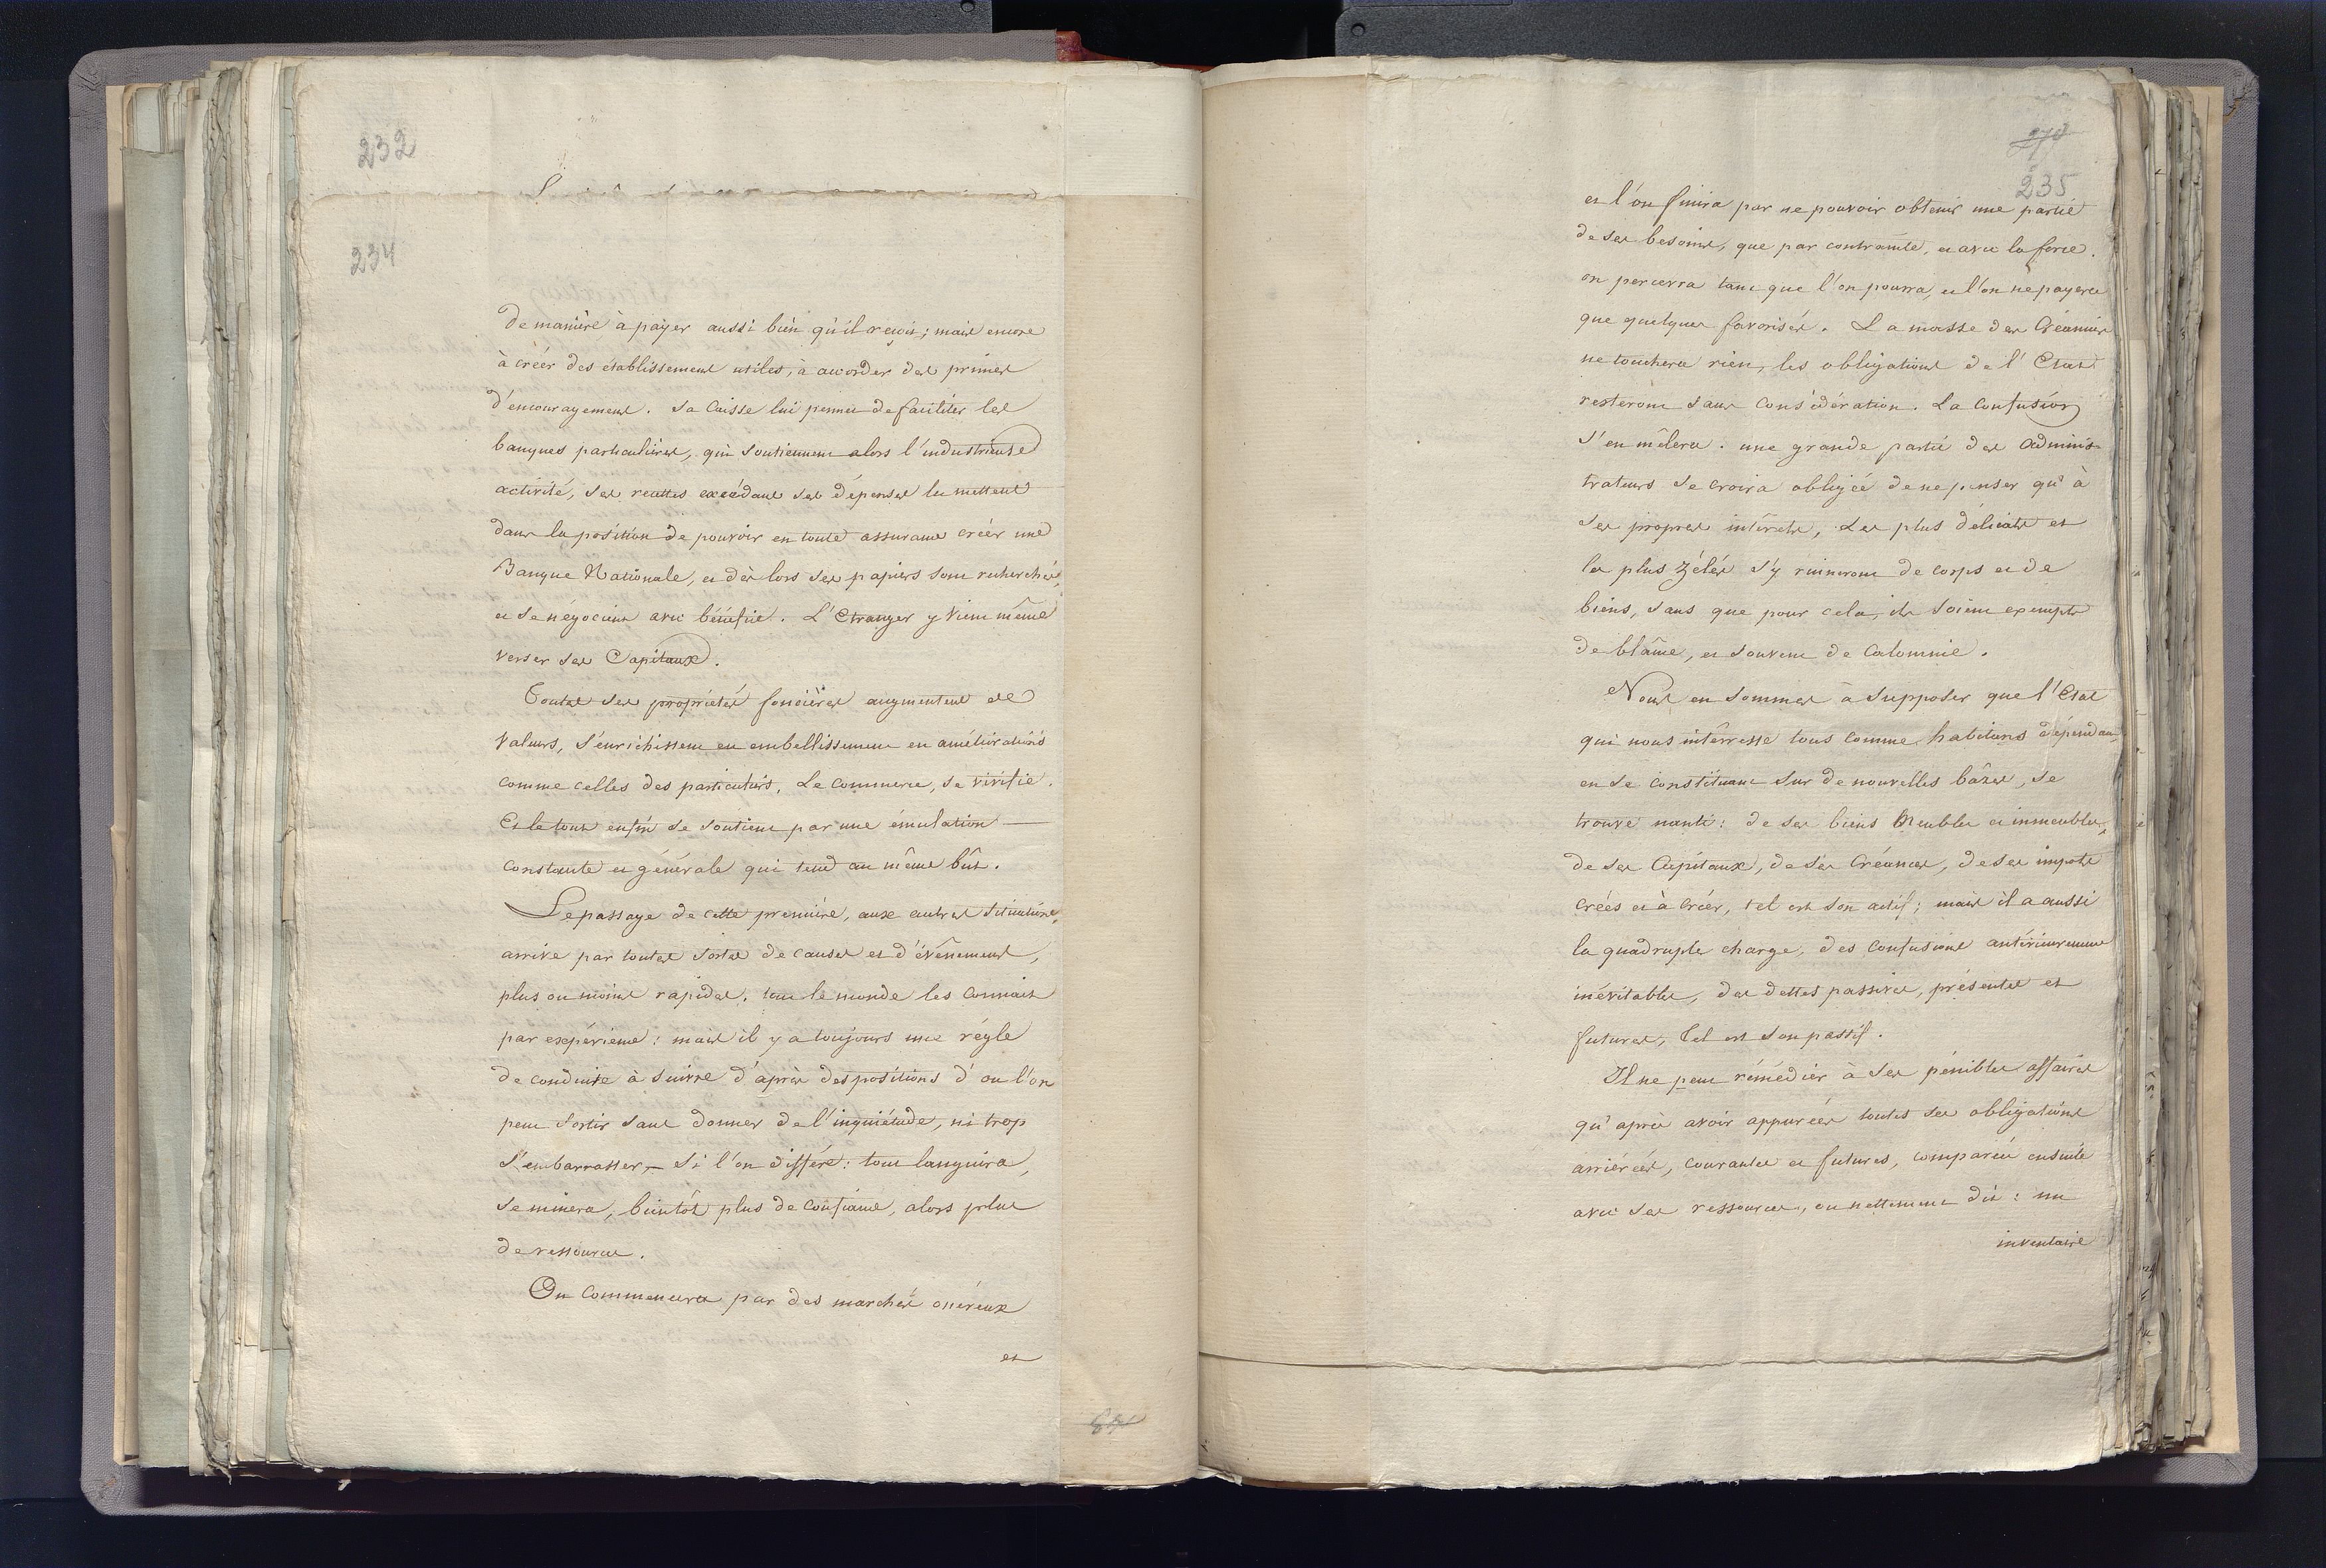 232
234
de manière à payer aussi bien qu'il reçoit; mais encore
à créer des établissemens utiles, à accorder des primes
d'encouragemens. Sa Caisse lui permet de faciliter les
banques particulières, qui soutiennent alors l'industrieuse
activité, ses recettes excédant ses dépenses le mettent
dans la position de pouvoir en toute assurance créer une
Banque Nationale, et dès lors ses papiers sont recherchés,
et se négocient avec bénéfice. L'Etranger y vient même
verser ses Capitaux.
Toutes ses propriétés foncières augmentent de
valeurs, s'enrichissent en embellissement en améliorations
comme celles des particuliers. Le Commerce, se vivifie.
Et le tout enfin se soutient par une émulation —
constante et générale qui tend au même bût.
Le passage de cette première, aux autres situations,
arrive par toutes sortes de causes et d'évênemens,
plus ou moins rapides. tout le monde les connait
par expérience: mais il y a toujours une régle
de conduite à suivre d'après des positions d'ou l'on
peut sortir sans donner de l'inquiétude, ni trop
s'embarrasser, — Si l'on différe: tout languira,
se minera, bientôt plus de confiance, alors plus
de ressources.
On Commencera par des marchés onéreux
et
84
270
235
et l'on finira par ne pouvoir obtenir une partie
de ses besoins, que par contrainte, et avec la force.
on percevra tant que l'on pourra, et l'on ne payera
que quelques favorisés. La masse des Créanciers
ne touchera rien, les obligations de l'Etat
resteront sans considération. La Confusion
s'en mêlera. une grande partie des adminis-
trateurs se croira obligée de ne penser qu'à
ses propres intérêts, Les plus délicats et
les plus zélés s'y ruineront de corps et de
biens, sans que pour cela, ils soient exempts
de blâme, et souvent de Calomnie.
Nous en sommes à supposer que l'Etat
qui nous intérresse tous comme habitans dépendans,
en se constituant sur de nouvelles bâzes, se
trouve nanti: de ses biens Meubles et immeubles,
de ses Capitaux, de ses Créances, de ses impots
créés et à créer, tel est son actif; mais il a aussi
la quadruple charge, des confusions antérieurement
inévitables, des dettes passives, présentes et
futures; Tel est son passif.
Il ne peut rémédier à ses pénibles affaires
qu'après avoir appurées toutes ses obligations
arriérées, courantes et futures, comparées ensuite
avec ses ressources, ou nettement dit: un
inventaire